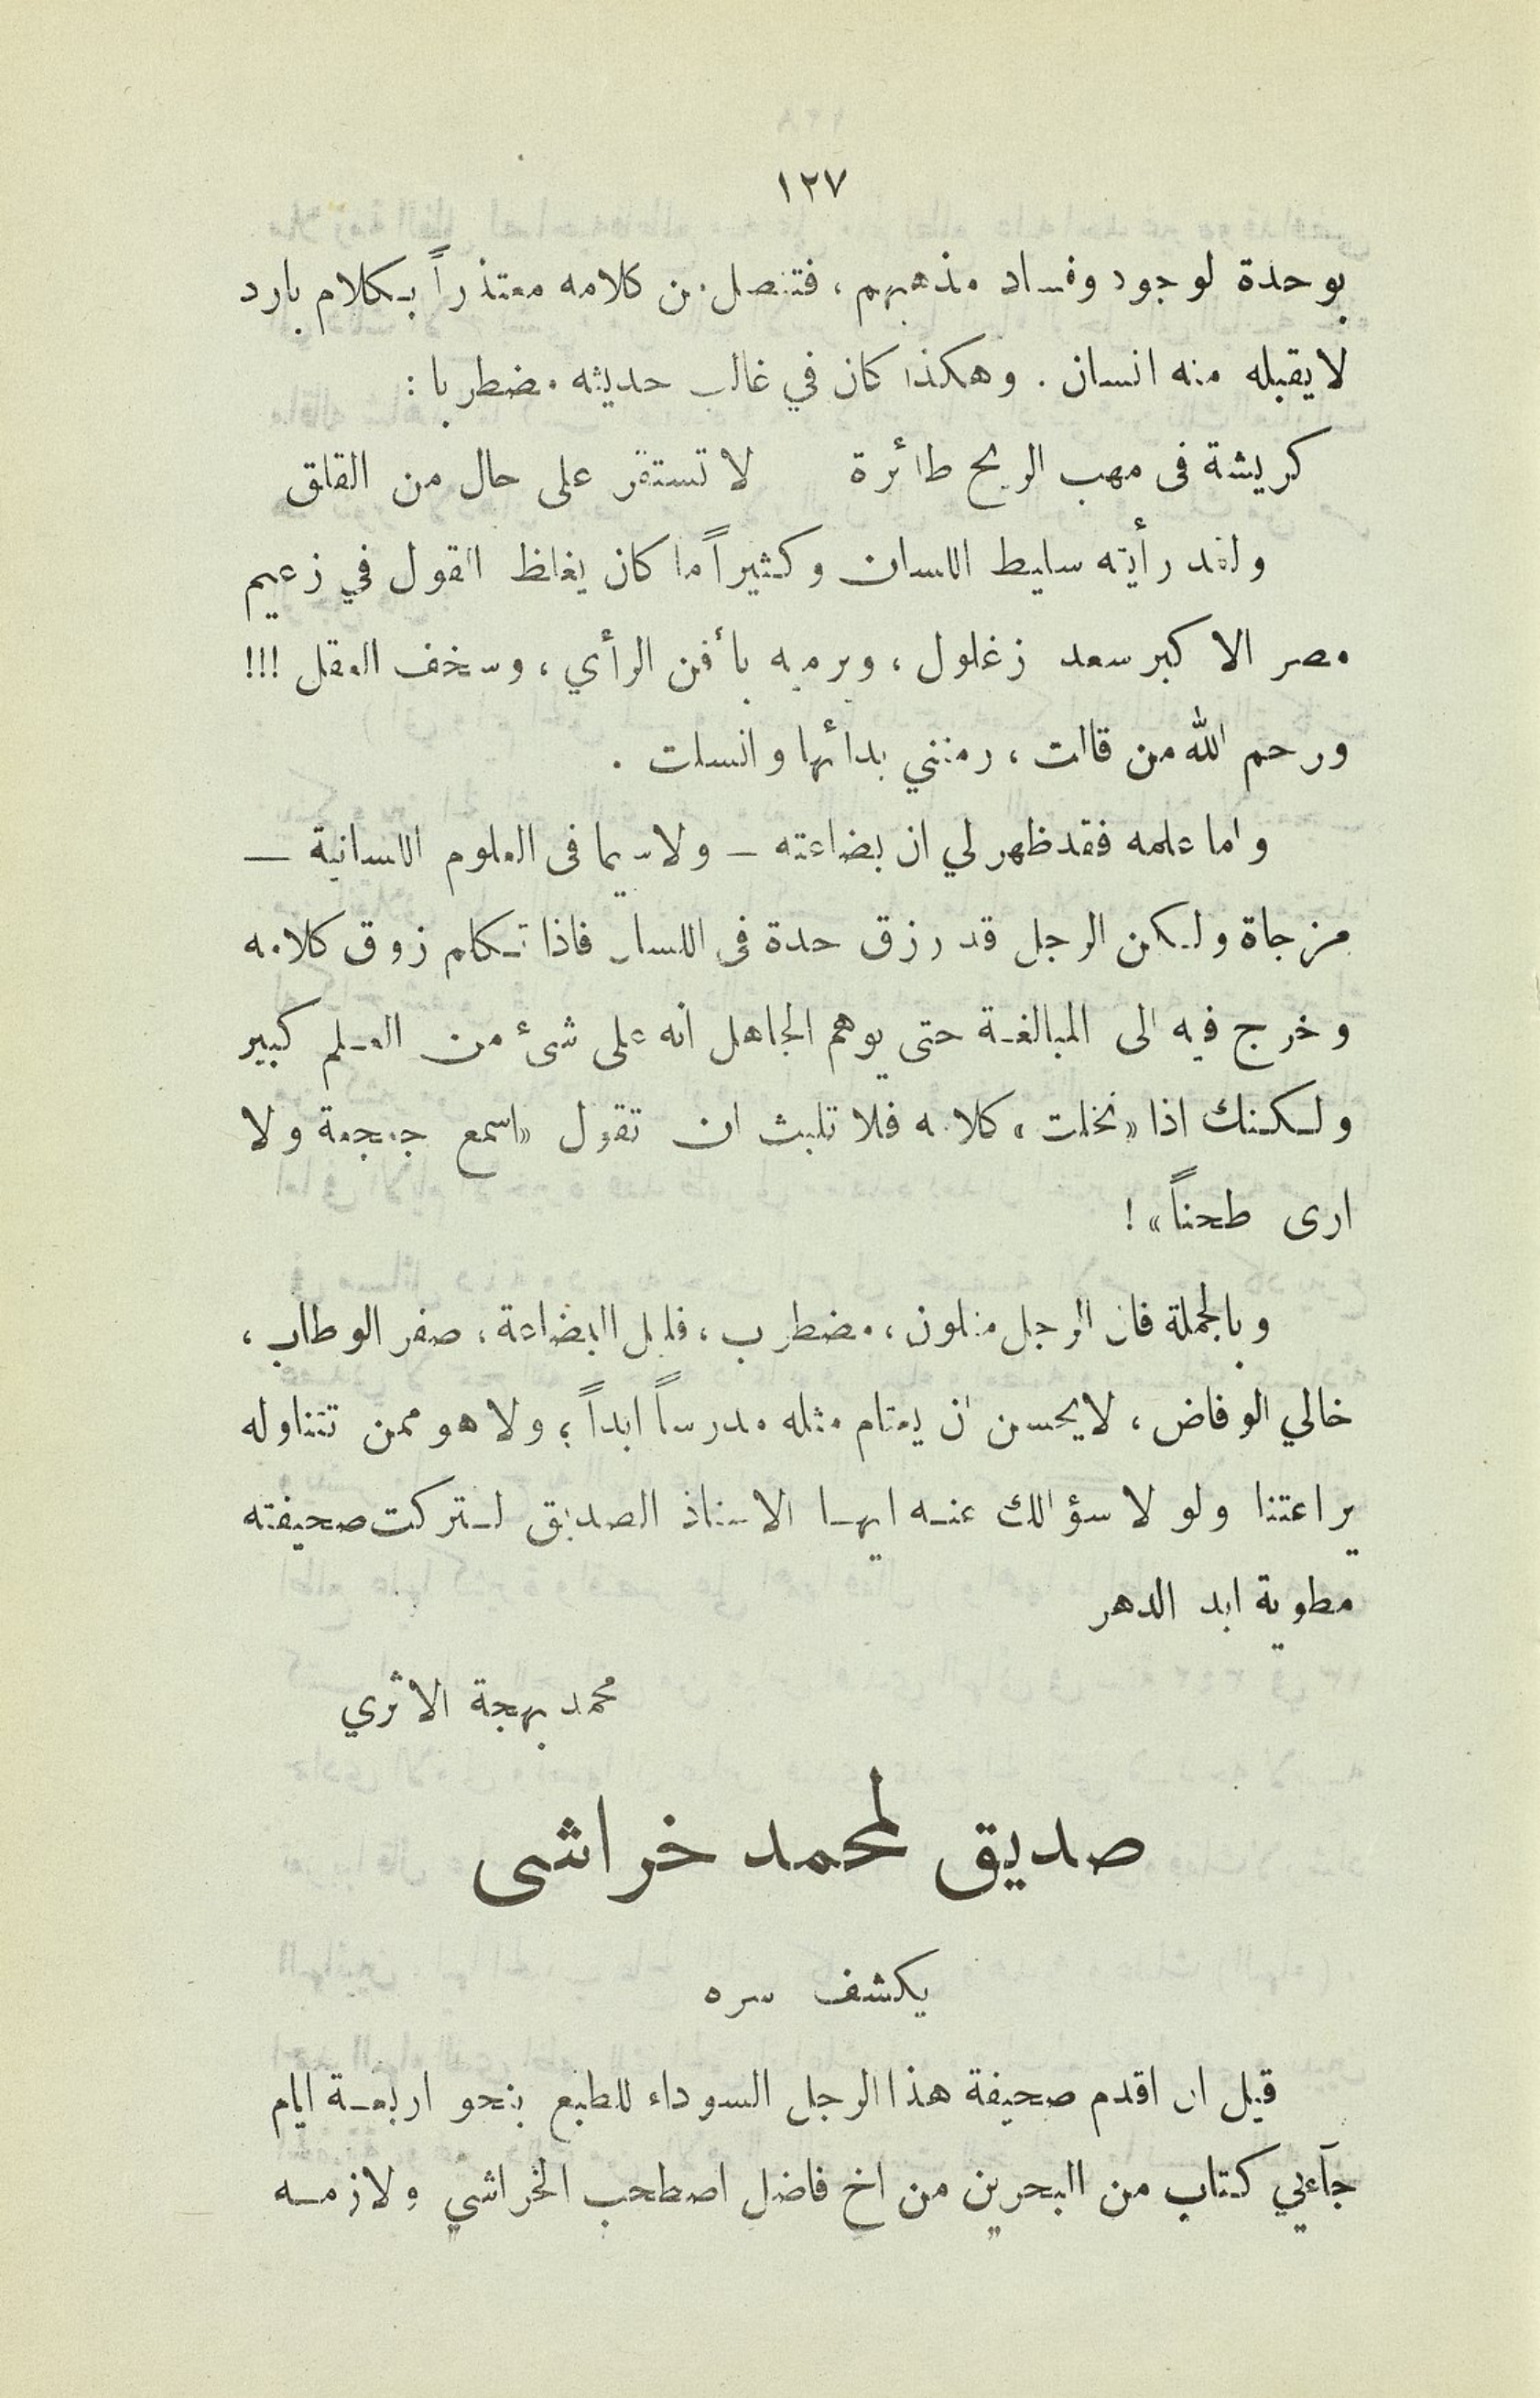 ١٢٧
بوحدة لوجود وفساد مذهبهم ، فتنصل من كلامه معتذراً بكلام بارد
لا يقبله منه انسان . وهكذا كان في غالب حديثه مضطربا :
كريشة فى مهب الريح طائرة لا تستقر على حال من القلق
ولقد رأيته سليط اللسان وكثيراً ما كان يغلظ القول في زعيم
مصر الاكبر سعد زغلول ، ويرميه بأفن الرأي ، وسخف العقل !!!
ورحم الله من قالت ، رمتني بدائها وانسلت .
واما علمه فقد ظهر لي ان بضاعته – ولا سيما فى العلوم اللسانية –
مزجاة ولكن الرجل قد رزق حدة فى اللسان فاذا تكلم زوق كلامه
وخرج فيه الى المبالغة حتى يوهم الجاهل انه على شئ من العلم كبير
ولكنك اذا «نخلت» كلامه فلا تلبث ان تقول «اسمع جعجعة ولا
ارى طحناً» !
وبالجملة فان الرجل متلون ، مضطرب ، قليل البضاعة ، صفر الوطاب ،
خالي الوفاض ، لا يحسن ان يعتام مثله مدرساً ابداً ؛ ولا هو ممن تتناوله
يراعتنا ولولا سؤالك عنه ايها الاستاذ الصديق لتركت صحيفته
مطوية ابد الدهر
محمد بهجة الاثري
صديق لمحمد خراشى
يكشف سره
قبل ان اقدم صحيفة هذا الرجل السوداء للطبع بنحو اربعة ايام
جآءني كتاب من البحرين من اخ فاضل اصطحب الخراشي ولازمه